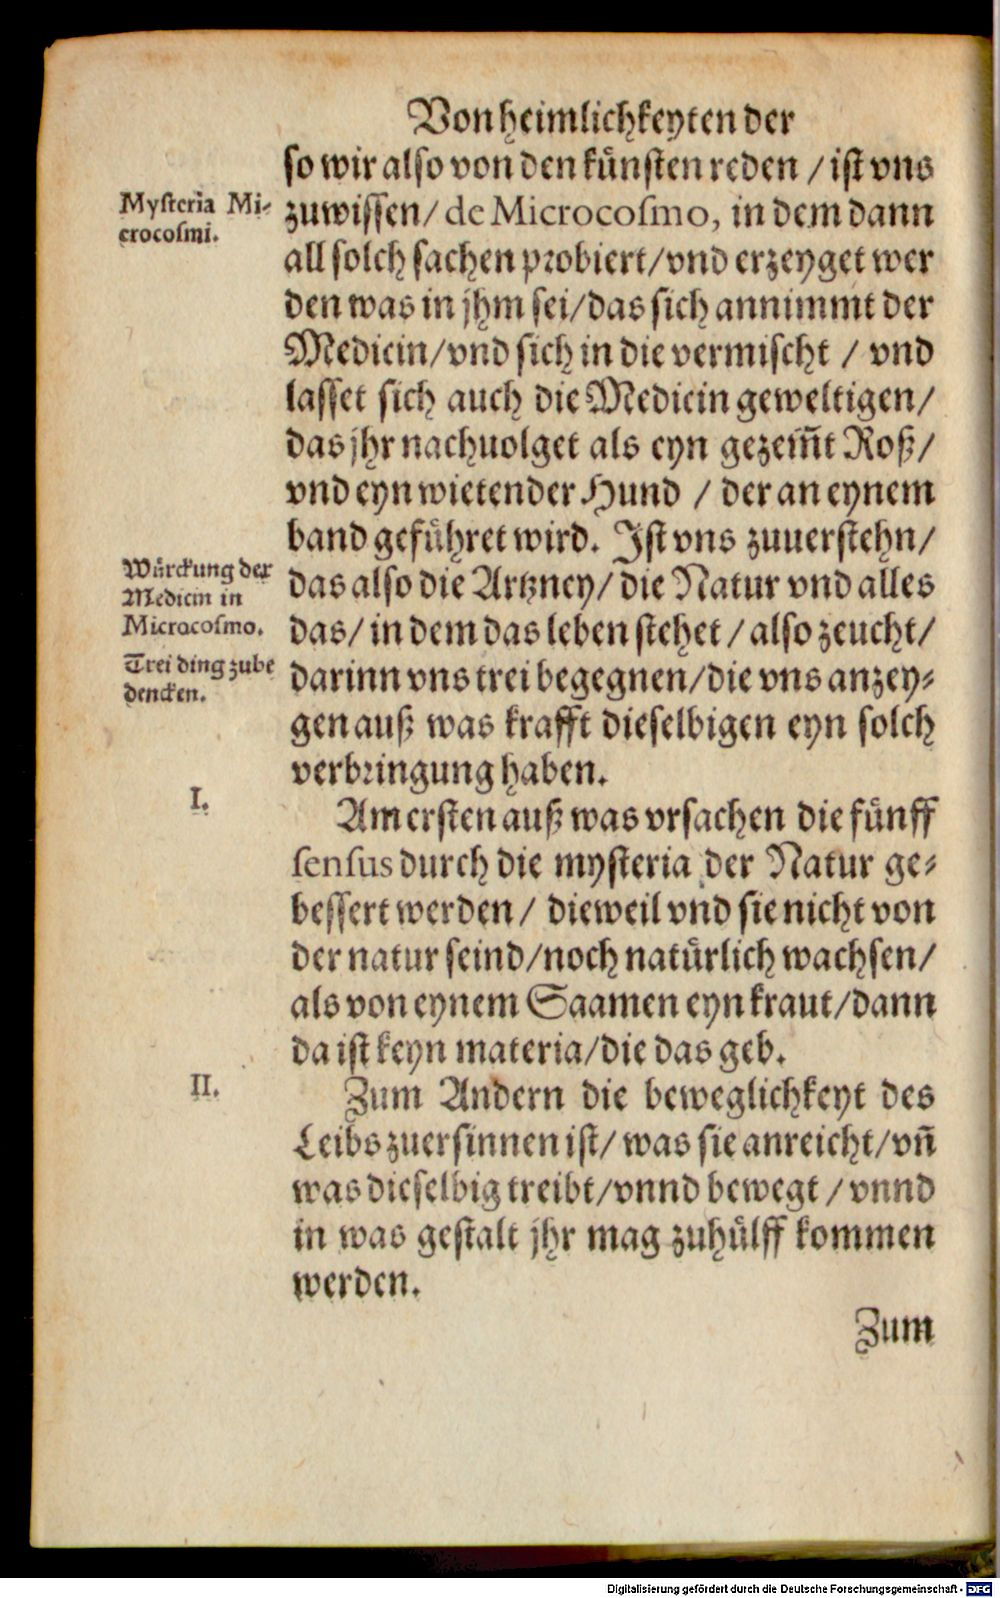 Von heimlichkeyten der
so wir also von den künsten reden / ist vns
Mysteria Mi-
crocosmi.
zuwissen / de Microcosmo, in dem dann
all solch sachen probiert / vnd erzeyget wer
den was in jhm sei / das sich annimmt der
Medicin / vnd sich in die vermischt / vnd
lasset sich auch die Medicin geweltigen /
das jhr nachuolget als eyn gezem̃t Roß /
vnd eyn wietender Hund / der an eynem
band geführet wird. Ist vns zuuerstehn /
Würckung der
Medicin in
Microcosmo.
das also die Artzney / die Natur vnd alles
das / in dem das leben stehet / also zeucht /
Trei ding zube
dencken.
darinn vns trei begegnen / die vns anzey-
gen auß was krafft dieselbigen eyn solch
verbringung haben.
I.
Am ersten auß was vrsachen die fünff
sensus durch die mysteria der Natur ge-
bessert werden / dieweil vnd sie nicht von
der natur seind / noch natürlich wachsen /
als von eynem Saamen eyn kraut / dann
da ist keyn materia / die das geb.
II.
Zum Andern die beweglichkeyt des
Leibs zuersinnen ist / was sie anreicht / vñ
was dieselbig treibt / vnnd bewegt / vnnd
in was gestalt jhr mag zuhülff kommen
werden.
Zum
Digitalisierung gefördert durch die Deutsche Forschungsgemeinschaft - DFG